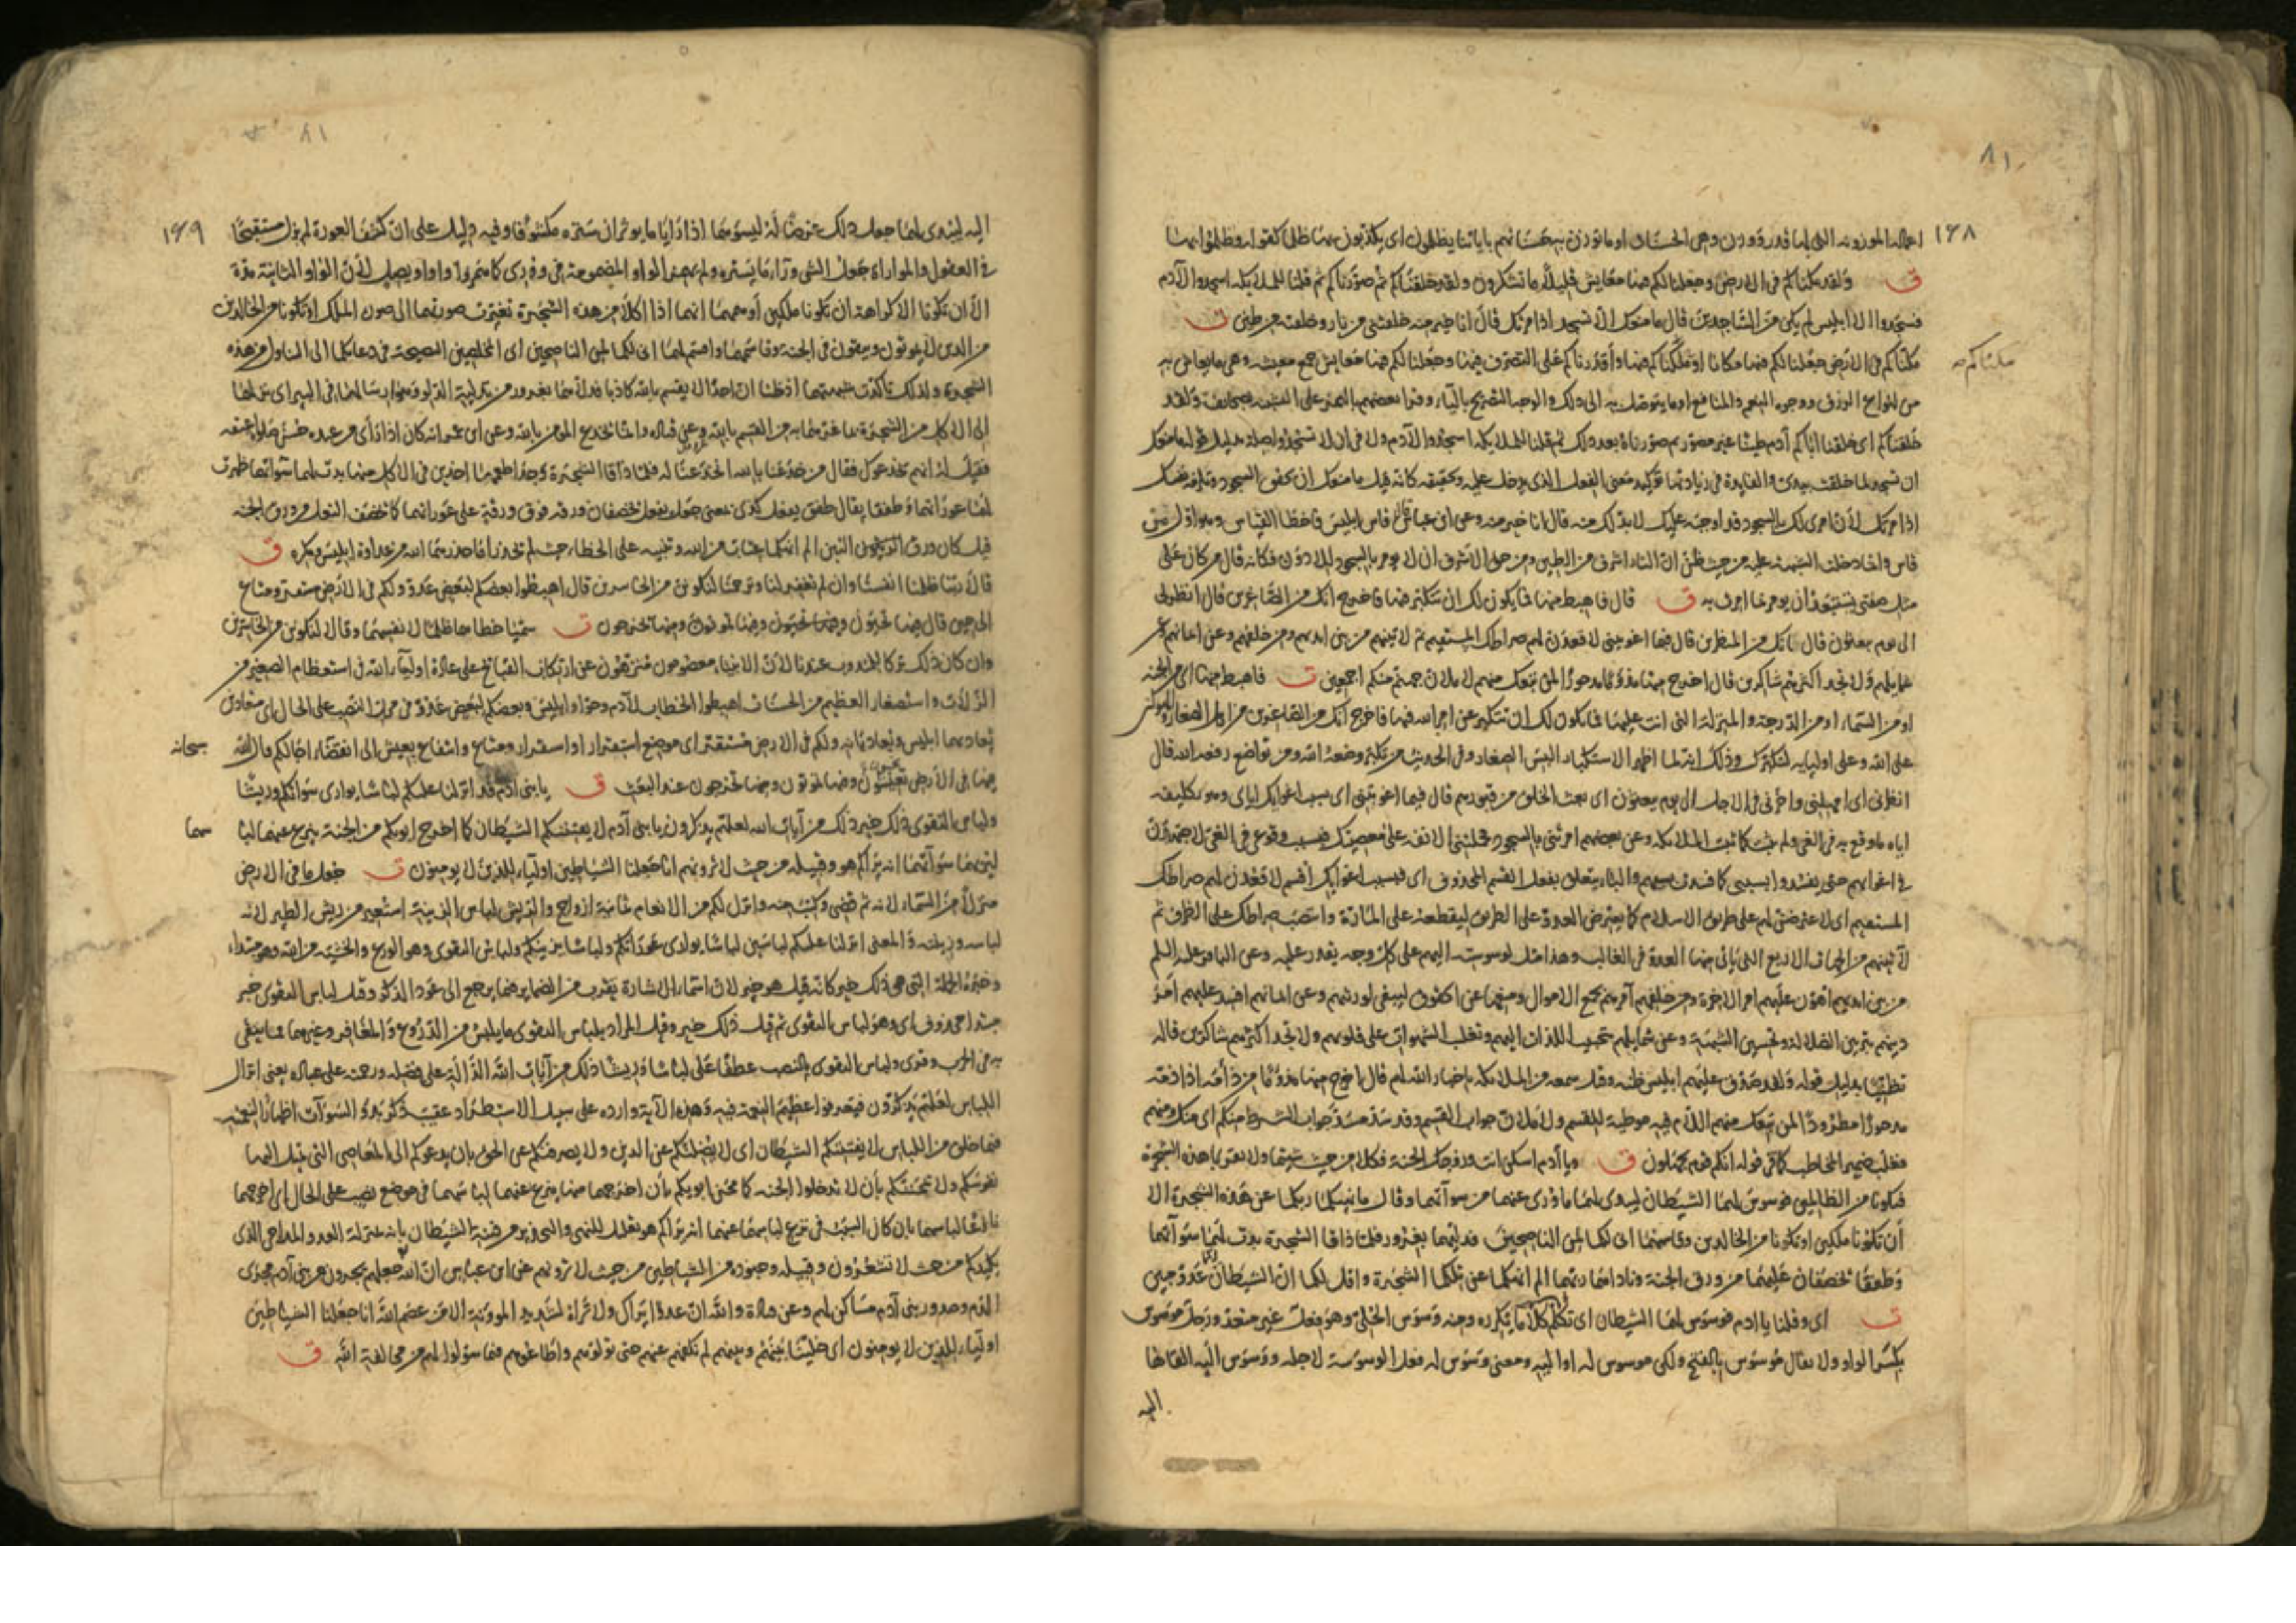 ١٦٨
٨١
اعماله الموزونة التي لها قدر ووزن وهي الحسنات او ما توزن به حسناتهم باياتنا يظلمون اي يكذبون بها ظلما كقوله وظلموا بها
ق ولقد مكناكم في الارض وجعلنا لكم فيها معايش قليلا ما تشكرون ولقد خلقناكم ثم صورناكم ثم قلنا للملائكة اسجدوا لآدم
فسجدوا الا ابليس لم يكن من الساجدين قال ما منعك الا تسجد اذ امرتك قال انا خير منه خلقتني من نار وخلقته من طين ت
مكناكم في الارض جعلنا لكم فيها مكانا او ملكناكم فيها واقدرناكم على التصرف فيها وجعلنا لكم فيها معايش جمع معيشة وهي ما يعاش به
مكناكم
من انواع الرزق ووجوه النعم والمنافع او ما يتوصل به الى ذلك والوجه التصريح بالياء وقرا بعضهم بالهمز على التشبيه بصحائف ولقد
خلقناكم اي خلقنا اباكم آدم طينا غير مصور ثم صورناه بعد ذلك ثم قلنا للملائكة اسجدوا لآدم ولا في ان لا تسجد صلة بدليل قوله ما منعك
ان تسجد لما خلقت بيدي والفايدة في زيادتها توكيد معنى الفعل الذي يدخل عليه وتحقيقه كانه قيل ما منعك ان تحقق السجود وتلزمه نفسك
اذ امرتك لان امري لك بالسجود قد اوجبه عليك لا بد لك منه قال انا خير منه وعن ابن عباس قاس ابليس فاخطا القياس وهو اول من
قاس وانما دخلت الشبهة عليه من حيث ظن ان النار اشرف من الطين ومن حق الاشرف ان لا يومر بالسجود للادون فكانه قال من كان على
مثل صفتي يستبعد ان يومر بما امرت به ق قال فاهبط منها فما يكون لك ان تتكبر فيها فاخرج انك من الصاغرين قال انظرني
الى يوم يبعثون قال انك من المنظرين قال فبما اغويتني لاقعدن لهم صراطك المستقيم ثم لاتينهم من بين ايديهم ومن خلفهم وعن ايمانهم وعن
شمايلهم ولا تجد اكثرهم شاكرين قال اخرج منها مذؤما مدحورا لمن تبعك منهم لاملان جهنم منكم اجمعين ت فاهبط منها اي من الجنة
او من السماء او من الدرجة والمنزلة التي انت عليها فما يكون لك ان تتكبر عن امر الله فيها فاخرج انك من الصاغرين من اهل الصغار والهوان
على الله وعلى اوليائه لتكبرك وذلك انه لما اظهر الاستكبار البس الصغار وفي الحديث من تكبر وضعه الله ومن تواضع رفعه الله قال
انظرني اي امهلني واخرني في الاجل الى يوم يبعثون اي يبعث الخلق من قبورهم قال فبما اغويتني اي بسبب اغوايك اياي وهو تكليفه
اياه ما وقع به في الغي ولم يثبت كما ثبت الملائكة وعن بعضهم امرتني بالسجود فحملني الانفة على معصيتك فبسبب وقوعي في الغي لاجتهدن
في اغوائهم حتى يفسدوا بسببي كما فسدت بسببهم والباء يتعلق بفعل القسم المحذوف اي فبسبب اغوايك اقسم لاقعدن لهم صراطك
المستقيم اي لاعترضن لهم على طريق الاسلام كما يعترض العدو على الطريق ليقطعه على المارة وانتصب صراطك على الظرف ثم
لآتينهم من الجهات الاربع التي يأتي منها العدو في الغالب وهذا مثل لوسوسته اليهم على كل وجه يقدر عليه وعن الباقر عليه السلم
من بين ايديهم اهون عليهم امر الاخرة ومن خلفهم آمرهم بجمع الاموال ومنعها عن الحقوق ليبقى لورثتهم وعن ايمانهم افسد عليهم امر
دينهم بتزيين الضلالة وتحسين الشبهة وعن شمايلهم بتحبيب اللذات اليهم وتغليب الشهوات على قلوبهم ولا تجد اكثرهم شاكرين قاله
تظنيا بدليل قوله ولقد صدق عليهم ابليس ظنه وقيل سمعه من الملائكة باخبار الله لهم قال اخرج منها مذؤما من ذأمه اذا ذمه
مدحورا مطرودا لمن تبعك منهم اللام فيه موطية للقسم ولاملان جواب القسم وقد سد مسد جواب الشرط منكم اي منك ومنهم
فغلب ضمير المخاطب كما في قوله انكم قوم تجهلون ق ويا آدم اسكن انت وزوجك الجنة فكلا من حيث شئتما ولا تقربا هذه الشجرة
فتكونا من الظالمين فوسوس لهما الشيطان ليبدي لهما ما ووري عنهما من سوآتهما وقال ما نهيكما ربكما عن هذه الشجرة الا
ان تكونا ملكين او تكونا من الخالدين وقاسمهما اني لكما لمن الناصحين فدليهما بغرور فلما ذاقا الشجرة بدت لهما سوآتهما
وطفقا يخصفان عليهما من ورق الجنة وناداهما ربهما الم انهكما عن تلكما الشجرة واقل لكما ان الشيطان لكما عدو مبين
ت اي وقلنا يا ادم فوسوس لهما الشيطان اي تكلم كلاما يكرره ومنه وسوس الحلي وهو فعل غير متعد ورجل موسوس
بكسر الواو ولا يقال موسوس بالفتح ولكن موسوس له او اليه ومعنى وسوس له فعل الوسوسة لاجله ووسوس اليه القاها
اليه
١٦٩
اليه ليبدي لهما جعل ذلك غرضا له ليسوءهما اذا رايا ما يوثران ستره مكشوفا وفيه دليل على ان كشف العورة لم يزل مستقبحا
في العقول والمواراة جعل الشي وراء ما يستره ولم يهمز الواو المضمومة في ووري كما همز واو اويصل لان الواو الثانية مدة
الا ان تكونا الا كراهة ان تكونا ملكين أوهمهما انهما اذا اكلا من هذه الشجرة تغيرت صورتهما الى صورة الملك او تكونا من الخالدين
من الذين لا يموتون ويبقون في الجنة وقاسمهما واقسم لهما اني لكما لمن الناصحين اي المخلصين النصيحة في دعائكما الى التناول من هذه
الشجرة ولذلك تاكدت شبهتهما اذ ظنا ان احدا لا يقسم بالله كاذبا فدلاهما بغرور من تدلية الدلو وهو ارسالها في البير اي نزلهما
الى الاكل من الشجرة بما غرهما به من القسم بالله وعن قتادة وانما يخدع المومن بالله وعن ابن عمر انه كان اذا رأى من عبده حسن صلوة اعتقه
فقيل له انهم يخدعونك فقال من خدعنا بالله انخدعنا له فلما ذاقا الشجرة وجدا طعمها اخذين في الاكل منها بدت لهما سوآتهما ظهرت
لهما عوراتهما وطفقا يقال طفق يفعل كذى بمعنى جعل يفعل يخصفان ورقة فوق ورقة على عوراتهما كما يخصف النعل من ورق الجنة
قيل كان ورق التين الم انهكما عتاب من الله وتنبيه على الخطا حيث لم يحذرا ما حذرهما الله من عداوة ابليس ومكره ق
قالا ربنا ظلمنا انفسنا وان لم تغفر لنا وترحمنا لنكونن من الخاسرين قال اهبطوا بعضكم لبعض عدو ولكم في الارض مستقر ومتاع
الى حين قال فيها تحيون وفيها تموتون ومنها تخرجون ت سميا خطاهما ظلما لانفسهما وقالا لنكونن من الخاسرين
وان كان ذلك تركا للمندوب عندنا لان الانبياء معصومون منزهون عن ارتكاب القبائح على عادة اولياء الله في استعظام الصغير من
الزلات واستصغار العظيم من الحسنات اهبطوا الخطاب لآدم وحوا وابليس وبعضكم لبعض عدو في موضع النصب على الحال اي متعادين
يعاديهما ابليس ويعاديانه ولكم في الارض مستقر اي موضع استقرار او استقرار ومتاع وانتفاع بعيش الى انقضاء اجالكم قال الله
سبحانه
فيها في الارض تحيون وفيها تموتون ومنها تخرجون عند البعث ق يا بني ادم قد انزلنا عليكم لباسا يواري سوآتكم وريشا
ولباس التقوى ذلك خير ذلك من آيات الله لعلهم يذكرون يا بني آدم لا يفتننكم الشيطان كما اخرج ابويكم من الجنة ينزع عنهما لبا
سهما
ليريهما سوآتهما انه يراكم هو وقبيله من حيث لا ترونهم انا جعلنا الشياطين اولياء للذين لا يومنون ت جعل ما في الارض
منزلا من السماء لانه ثم قضي وكتب ومنه وانزل لكم من الانعام ثمانية ازواج والريش لباس الزينة استعير من ريش الطير لانه
لباسه وزينته والمعنى انزلنا عليكم لباسين لباسا يواري عوراتكم ولباسا يزينكم ولباس التقوى وهو الورع والخشية من الله وهو مبتداء
وخبره الجملة التي هي ذلك خير كانه قيل هو خير لان اسماء الاشارة يقرب من الضماير فيما يرجع الى عود الذكر وقيل لباس التقوى خبر
مبتدا محذوف اي وهو لباس التقوى ثم قيل ذلك خير وقيل المراد بلباس التقوى ما يلبس من الدروع والمغافر وغيرهما مما يتقى
به في الحرب وقرى ولباس التقوى بالنصب عطفا على لباسا وريشا ذلك من آيات الله الدالة على فضله ورحمته على عباده يعني انزال
اللباس لعلهم يذكرون فيعرفوا عظيم النعمة فيه وهذه الآية وارده على سبيل الاستطراد عقيب ذكر بدو السوآت اظهارا للنعمة
فيما خلق من اللباس لا يفتننكم الشيطان اي لا يضلنكم عن الدين ولا يصرفنكم عن الحق بان يدعوكم الى المعاصي التي تميل اليها
نفوسكم ولا يمحننكم بأن لا تدخلوا الجنة كما محن ابويكم بان اخرجهما منها ينزع عنهما لباسهما في موضع نصب على الحال اي اخرجهما
نازعا لباسهما بان كان السبب في نزع لباسهما عنهما انه يراكم هو تعليل للنهي والتحذير من فتنة الشيطان بانه بمنزلة العدو المداجي الذي
يكيدكم من حيث لا تشعرون وقبيله وجنوده من الشياطين من حيث لا ترونهم عن ابن عباس ان الله جعلهم يجرون من بني آدم مجرى
الدم وصدور بني آدم مساكن لهم وعن قتادة والله ان عدوا يراك ولا تراه لشديد الموونة الا من عصم الله انا جعلنا الشياطين
اولياء للذين لا يومنون اي خلينا بينهم وبينهم لم نكفهم عنهم حتى تولوهم واطاعوهم فيما سولوا لهم من مخالفة الله ق